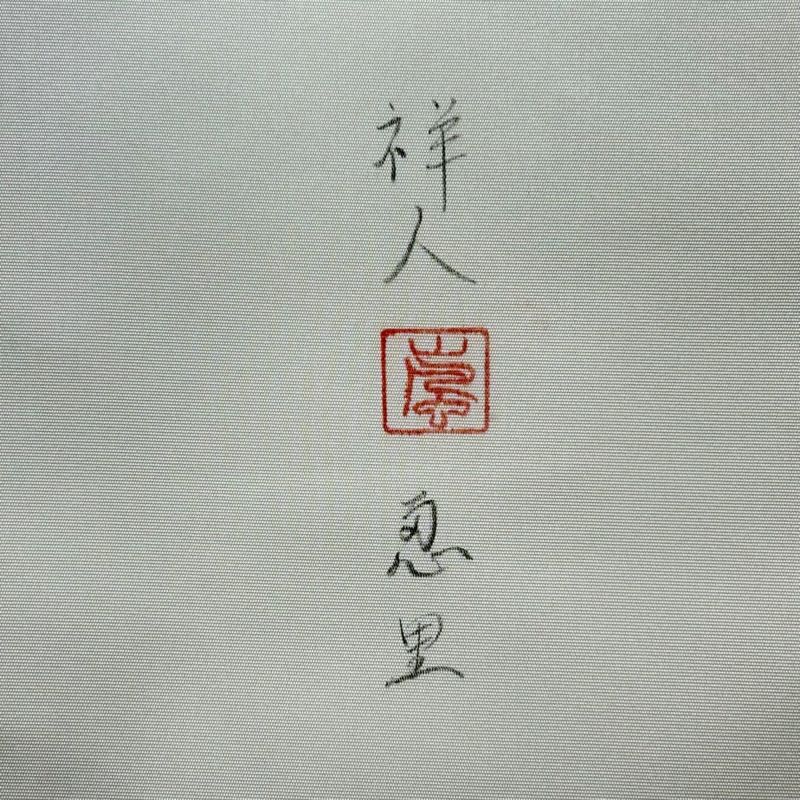 祥人
恵里